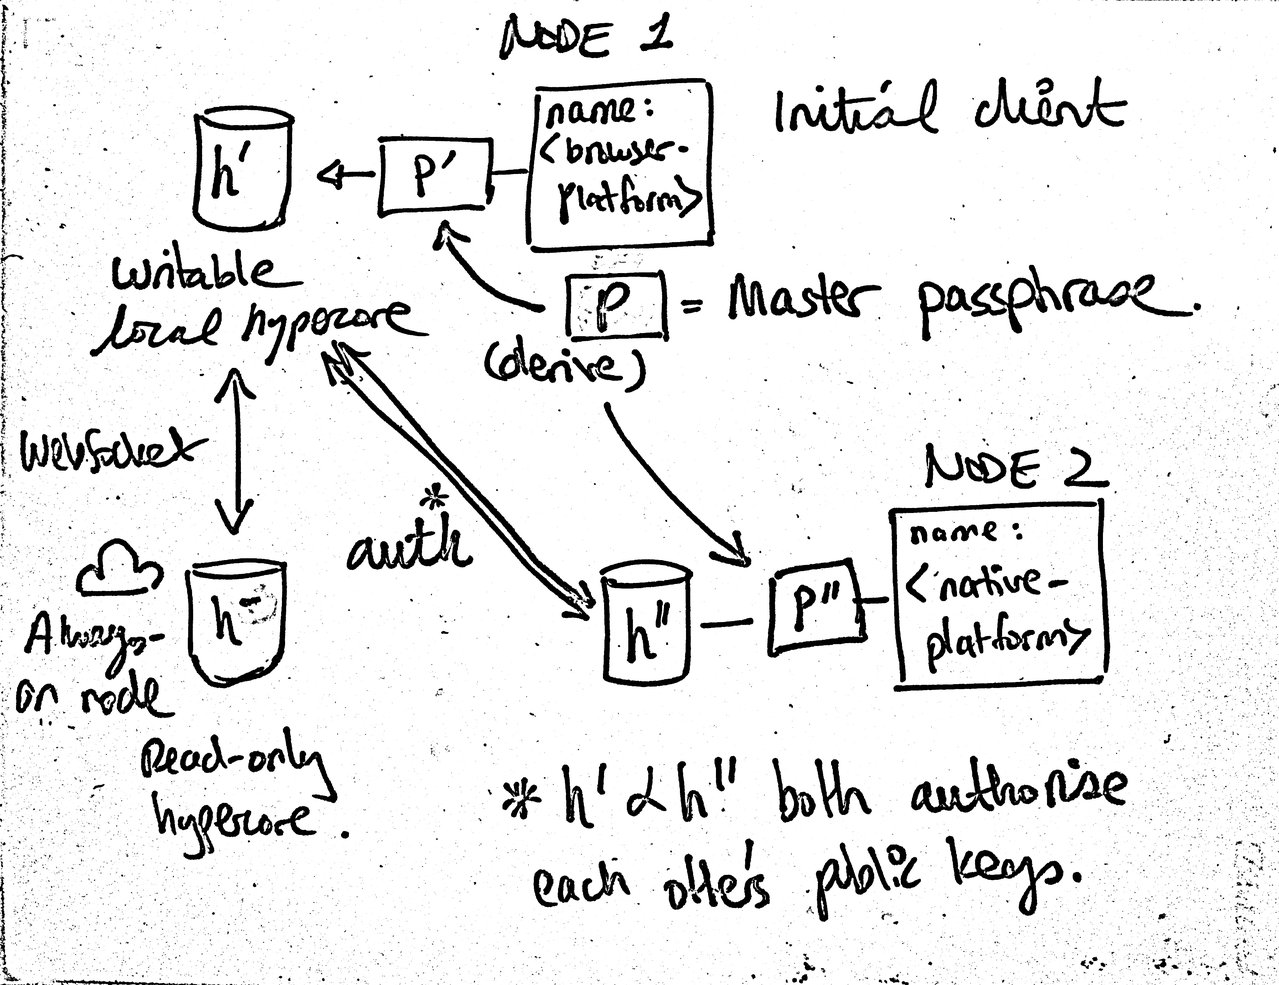 NODE 1
Initial client
name:
<browser-
platform>
p'
h'
writable
local hypercore
P = Master passphrase.
(derive)
WebSocket
* auth
NODE 2
name:
<native-
platform>
p"
h"
h-
Always-
on node
Read-only
hypercore.
* h' & h" both authorise
each other's public keys.